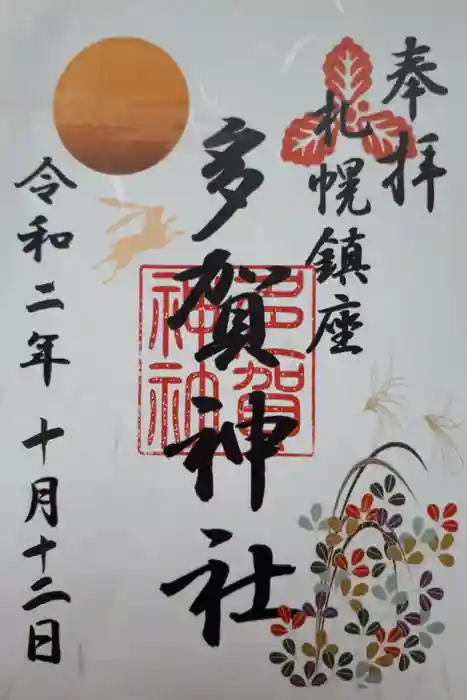 奉拝
札幌鎮座
多賀神社
多賀
神社
令和二年十月十二日